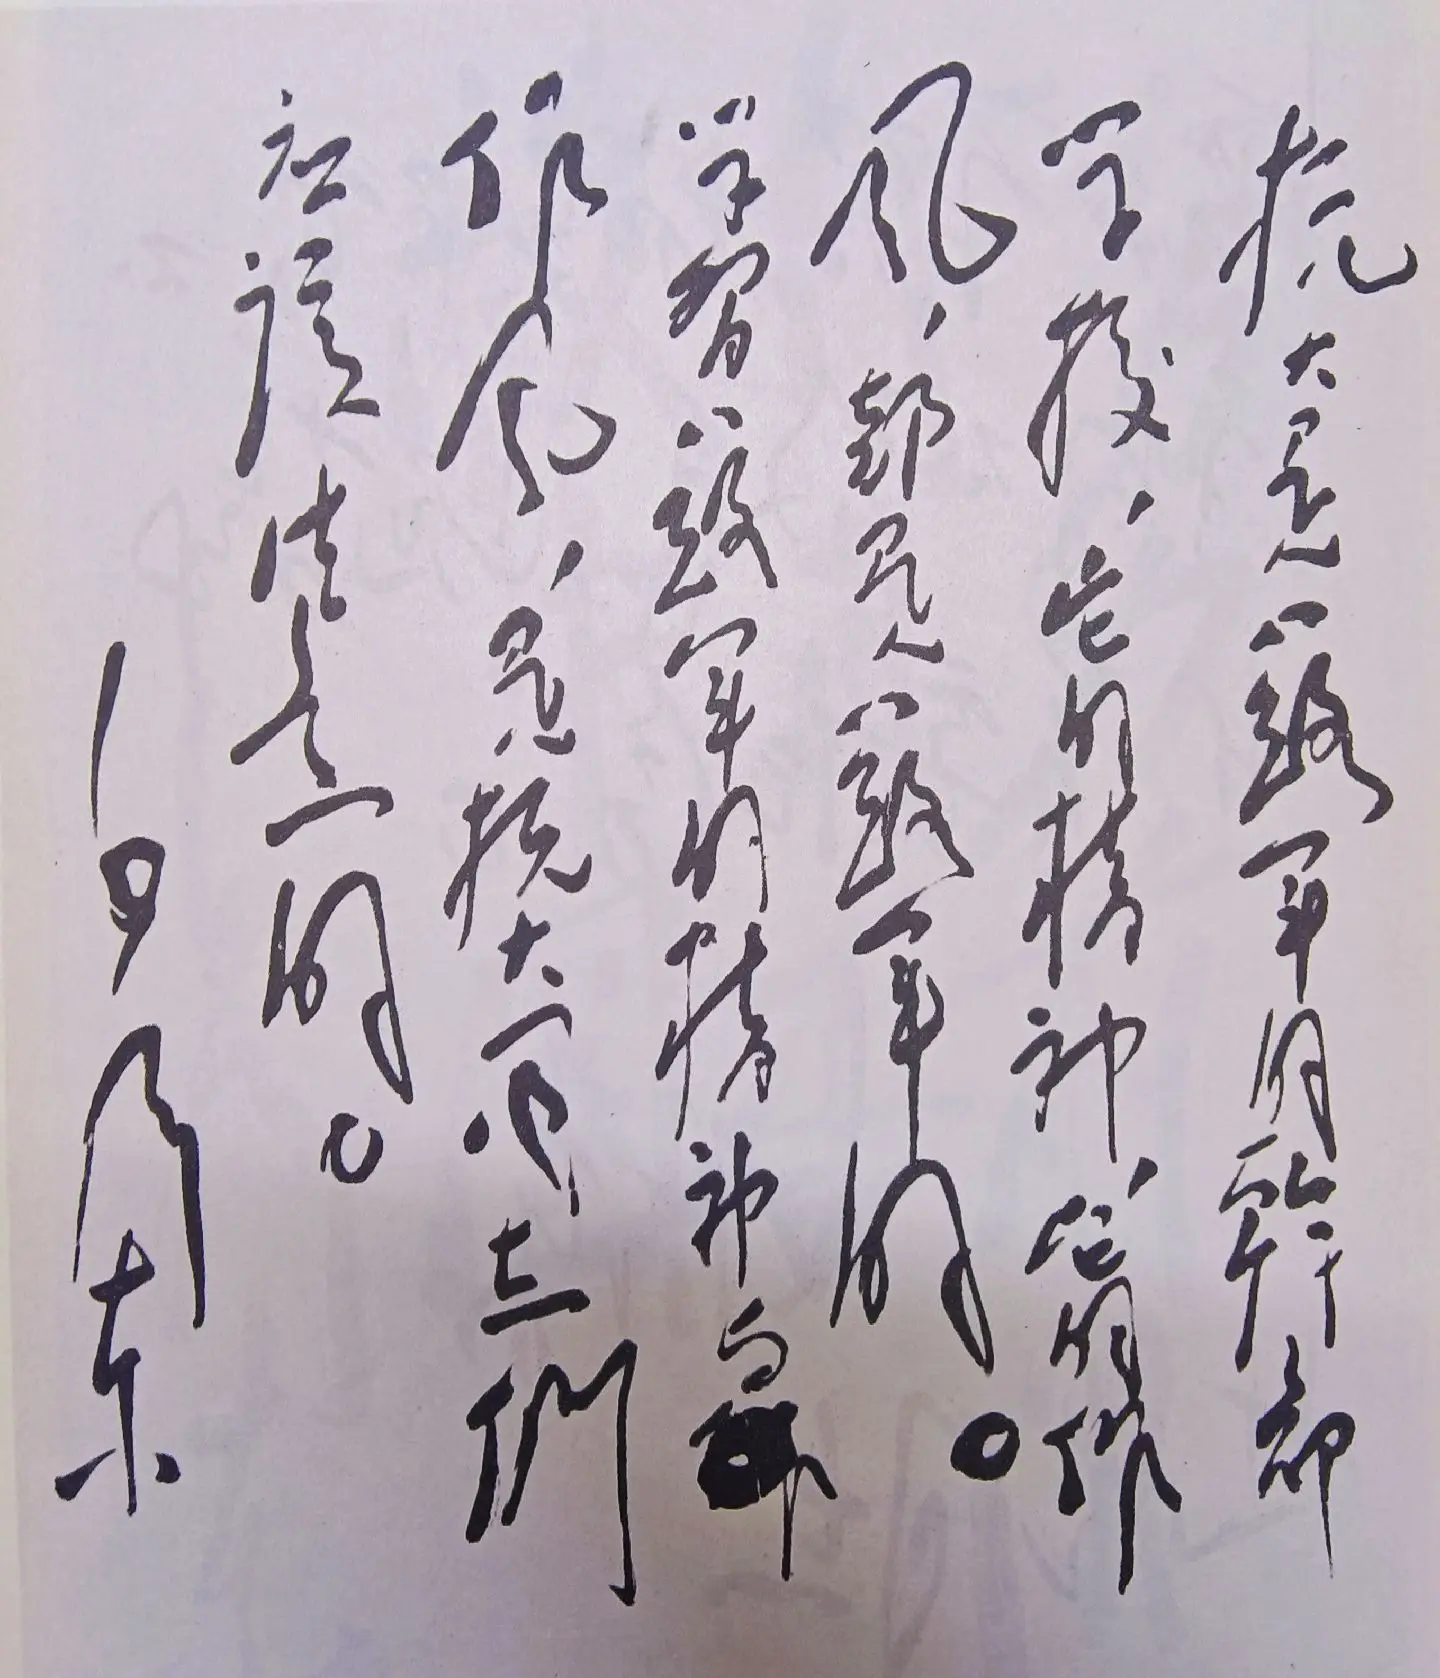 抗大是八路军的幹部
学校，它的精神，它的作
风，都是八路军的。
学習八路军的精神与
作风，是抗大同志們
应该注意的。
毛泽东